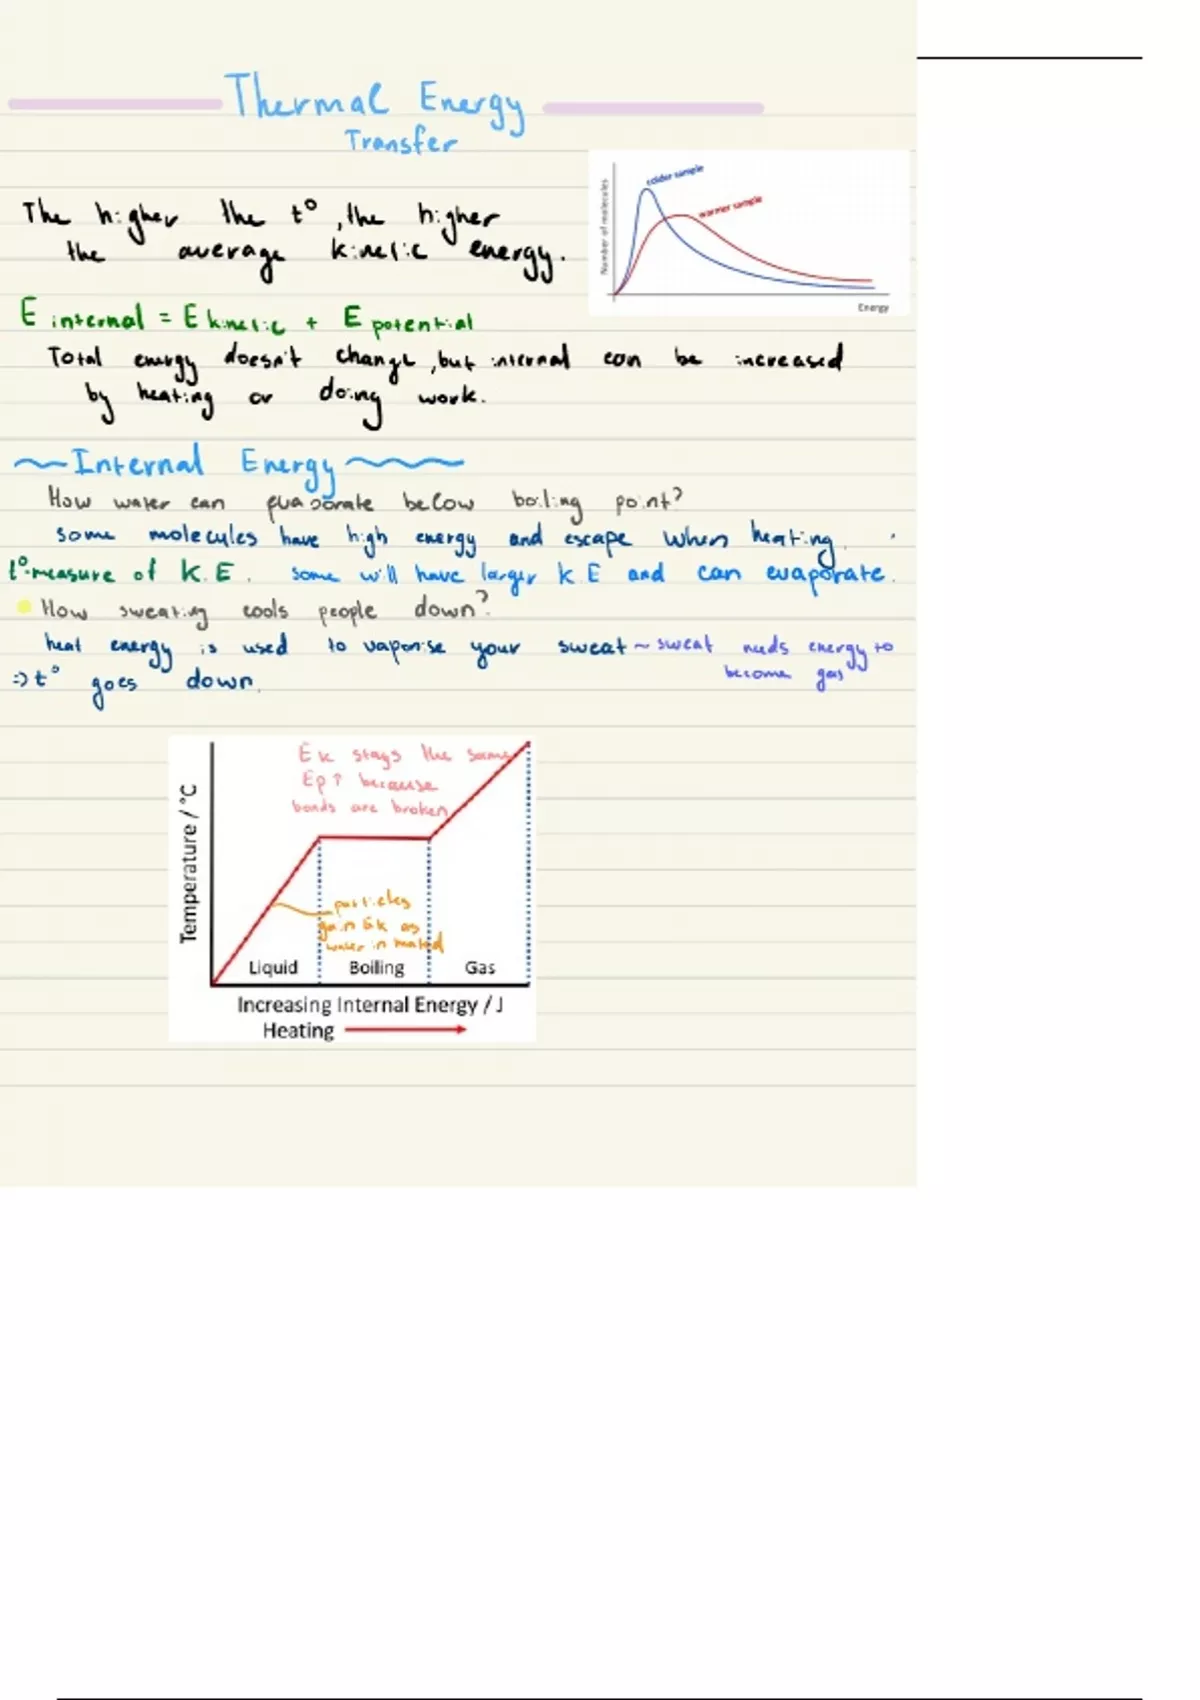 Thermal Energy
Transfer
The higher the t°, the higher
the average kinetic energy.
colder sample
warmer sample
Number of molecules
Energy
E internal = E kinetic + E potential
Total energy doesn't change, but internal can be increased
by heating or doing work.
~Internal Energy~
How water can evaporate below boiling point?
some molecules have high energy and escape when heating.
t°-measure of K.E. some will have larger K.E and can evaporate.
How sweating cools people down?
heat energy is used to vaporise your sweat ~ sweat needs energy to
become gas
=> t° goes down.
Ek stays the same
Ep↑ because
bonds are broken
Temperature / °C
particles
gain Ek as
water in heated
Liquid Boiling Gas
Increasing Internal Energy / J
Heating